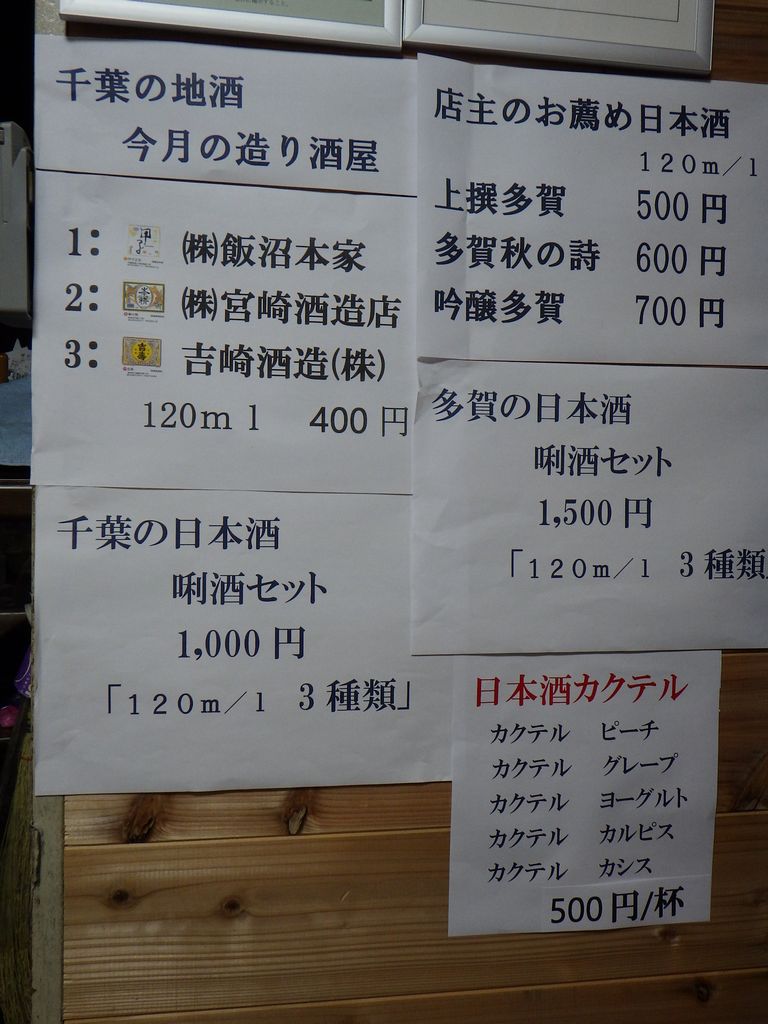 千葉の地酒
今月の造り酒屋
1： ㈱飯沼本家
2： ㈱宮崎酒造店
3： 吉崎酒造(株)
120ｍｌ 400 円
千葉の日本酒
唎酒セット
1,000 円
「120ｍ／ｌ 3 種類」
店主のお薦め日本酒
120ｍ／ｌ
上撰多賀 500 円
多賀秋の詩 600 円
吟醸多賀 700 円
多賀の日本酒
唎酒セット
1,500 円
「120ｍ／ｌ 3 種類
日本酒カクテル
カクテル ピーチ
カクテル グレープ
カクテル ヨーグルト
カクテル カルピス
カクテル カシス
500 円/杯